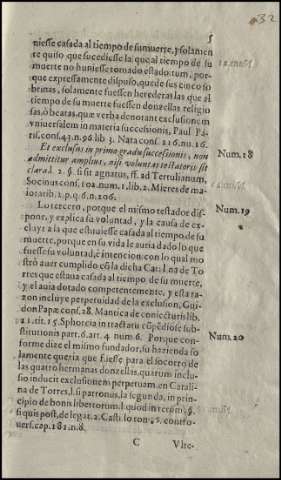 5
32
niesse casada al tiempo de su muerte, y solamen
te quiso, que sucediesse la que al tiempo de su
muerte no huniesse tomado estado: tum, por-
que expressamente dispuso, que de sus cinco so
brinas, solamente fuessen herederas las que al
tiempo de su muerte fuessen donzellas religio
sas, ò beatas, quæ verba denotant exclusionem
vniuersalem in materia successionis, Paul Pa
ris. cons. 43. n. 96. lib. 3. Nata cons. 216. nu. 16.
Et exclusus in primo gradu successionis, non
admittitur amplius, nisi voluntas testatoris sit
clara. l. 2. §. si sit agnatus, ff. ad Tertulianum,
Socinus cons. 10a. num. 1. lib. 2. Mieres de ma-
ioratib. 2. p. q. 6. n. 206.
Num. 18
Lo tercero, porque el mismo testador dis-
pone, y explica su voluntad, y la causa de ex-
cluyr a la que estuuiesse casada al tiempo de su
muerte, porque en su vida le auria dado lo que
fuesse su voluntad, è intencion: con lo qual mo
strò auer cumplido cõ la dicha Catalina de To
rres que estaua casada al tiempo de su muerte,
y el auia dotado competentemente, y esta ra-
zon incluye perpetuidad de la exclusion, Gui-
don Papæ cons. 28. Mantica de coniecturis lib.
21. tit. 15. Sphorcia in tractatu cũpẽdiose sub-
stitutionis part. 6. art. 4 num. 6. Porque con-
forme dize el mismo fundador, su hazienda so
lamente queria que fuesse para el socorro de
las quatro hermanas donzellas, quarum inclu-
sio inducit exclusionem perpetuam, en Catali-
na de Torres, l. si patronus, la segunda, in prin-
cipio de bonis libertorum. l. quod in rerum, §.
si quis post, de legat. 2. Casti. lo tom. 5. contro-
uers. cap. 181. n. 8.
Num. 19
Num. 20
C
Vlte-